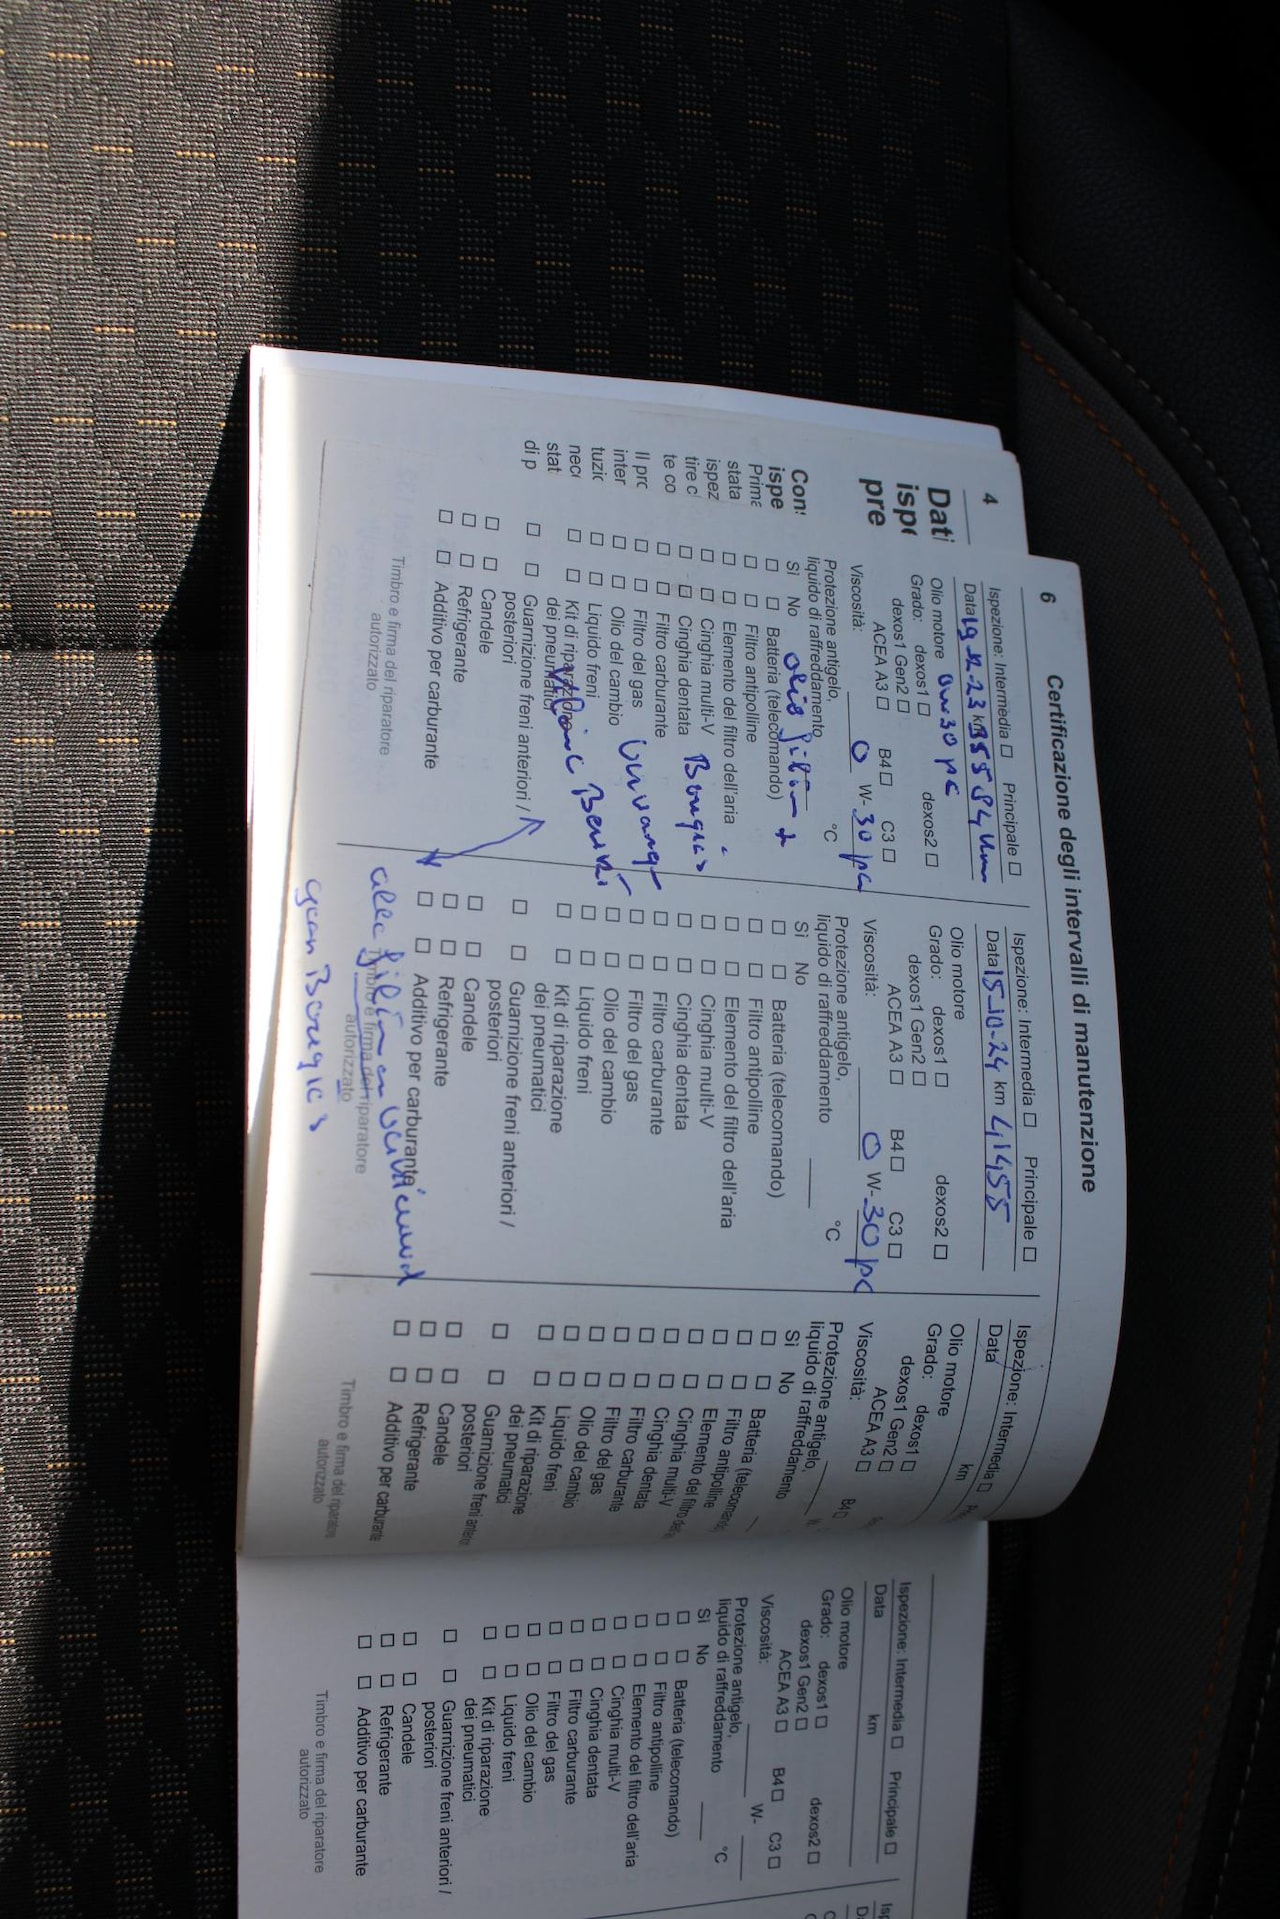 4
Dati
ispe
pre
Con
ispe
stata
ispez
tire c
te co
Il pro
inter
tuzio
nece
stat
di p
6
Certificazione degli intervalli di manutenzione
Ispezione: Intermedia □ Principale □
Data 19 km
Olio motore 0w30 pc
Grado: dexos1 □ dexos2 □
dexos1 Gen2 □
ACEA A3 □ B4 □ C3 □
Viscosità: 0 W- 30 pc
Protezione antigelo,
liquido di raffreddamento °C
Sì No
□ □ Batteria (telecomando)
□ □ Filtro antipolline
□ □ Elemento del filtro dell'aria
□ □ Cinghia multi-V
□ □ Cinghia dentata
□ □ Filtro carburante
□ □ Filtro del gas
□ □ Olio del cambio
□ □ Liquido freni
□ □ Kit di riparazione
dei pneumatici
□ □ Guarnizione freni anteriori /
posteriori
□ □ Candele
□ □ Refrigerante
□ □ Additivo per carburante
Timbro e firma del riparatore
autorizzato
Ispezione: Intermedia □ Principale □
Data 15-10-24 km 41455
Olio motore
Grado: dexos1 □ dexos2 □
dexos1 Gen2 □
ACEA A3 □ B4 □ C3 □
Viscosità: 0 W- 30 pc
Protezione antigelo,
liquido di raffreddamento °C
Sì No
□ □ Batteria (telecomando)
□ □ Filtro antipolline
□ □ Elemento del filtro dell'aria
□ □ Cinghia multi-V
□ □ Cinghia dentata
□ □ Filtro carburante
□ □ Filtro del gas
□ □ Olio del cambio
□ □ Liquido freni
□ □ Kit di riparazione
dei pneumatici
□ □ Guarnizione freni anteriori /
posteriori
□ □ Candele
□ □ Refrigerante
□ □ Additivo per carburante
Timbro e firma del riparatore
autorizzato
alle
Bougies
Ispezione: Intermedia □
Data km
Olio motore
Grado: dexos1 □
dexos1 Gen2 □
ACEA A3 □ B4 □
Viscosità:
Protezione antigelo,
liquido di raffreddamento
Sì No
□ □ Batteria
□ □ Filtro antipolline
□ □ Elemento del filtro
□ □ Cinghia multi-V
□ □ Cinghia dentata
□ □ Filtro carburante
□ □ Filtro del gas
□ □ Olio del cambio
□ □ Liquido freni
□ □ Kit di riparazione
dei pneumatici
□ □ Guarnizione freni
posteriori
□ □ Candele
□ □ Refrigerante
□ □ Additivo per carburante
Timbro e firma del riparatore
autorizzato
Ispezione: Intermedia □ Principale □
Data km
Olio motore
Grado: dexos1 □ dexos2 □
dexos1 Gen2 □
ACEA A3 □ B4 □ C3 □
Viscosità: W-
Protezione antigelo,
liquido di raffreddamento °C
Sì No
□ □ Batteria (telecomando)
□ □ Filtro antipolline
□ □ Elemento del filtro dell'aria
□ □ Cinghia multi-V
□ □ Cinghia dentata
□ □ Filtro carburante
□ □ Filtro del gas
□ □ Olio del cambio
□ □ Liquido freni
□ □ Kit di riparazione
dei pneumatici
□ □ Guarnizione freni anteriori /
posteriori
□ □ Candele
□ □ Refrigerante
□ □ Additivo per carburante
Timbro e firma del riparatore
autorizzato